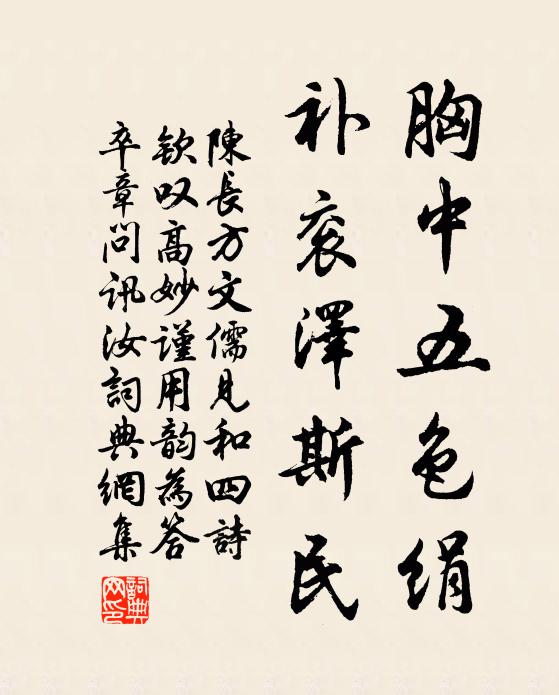 胸中五色绢
补衮泽斯民
陳長方文儒見和四詩
欽叹高妙谨用韵為答
卒章问讯汝詞典網集
詞典网印